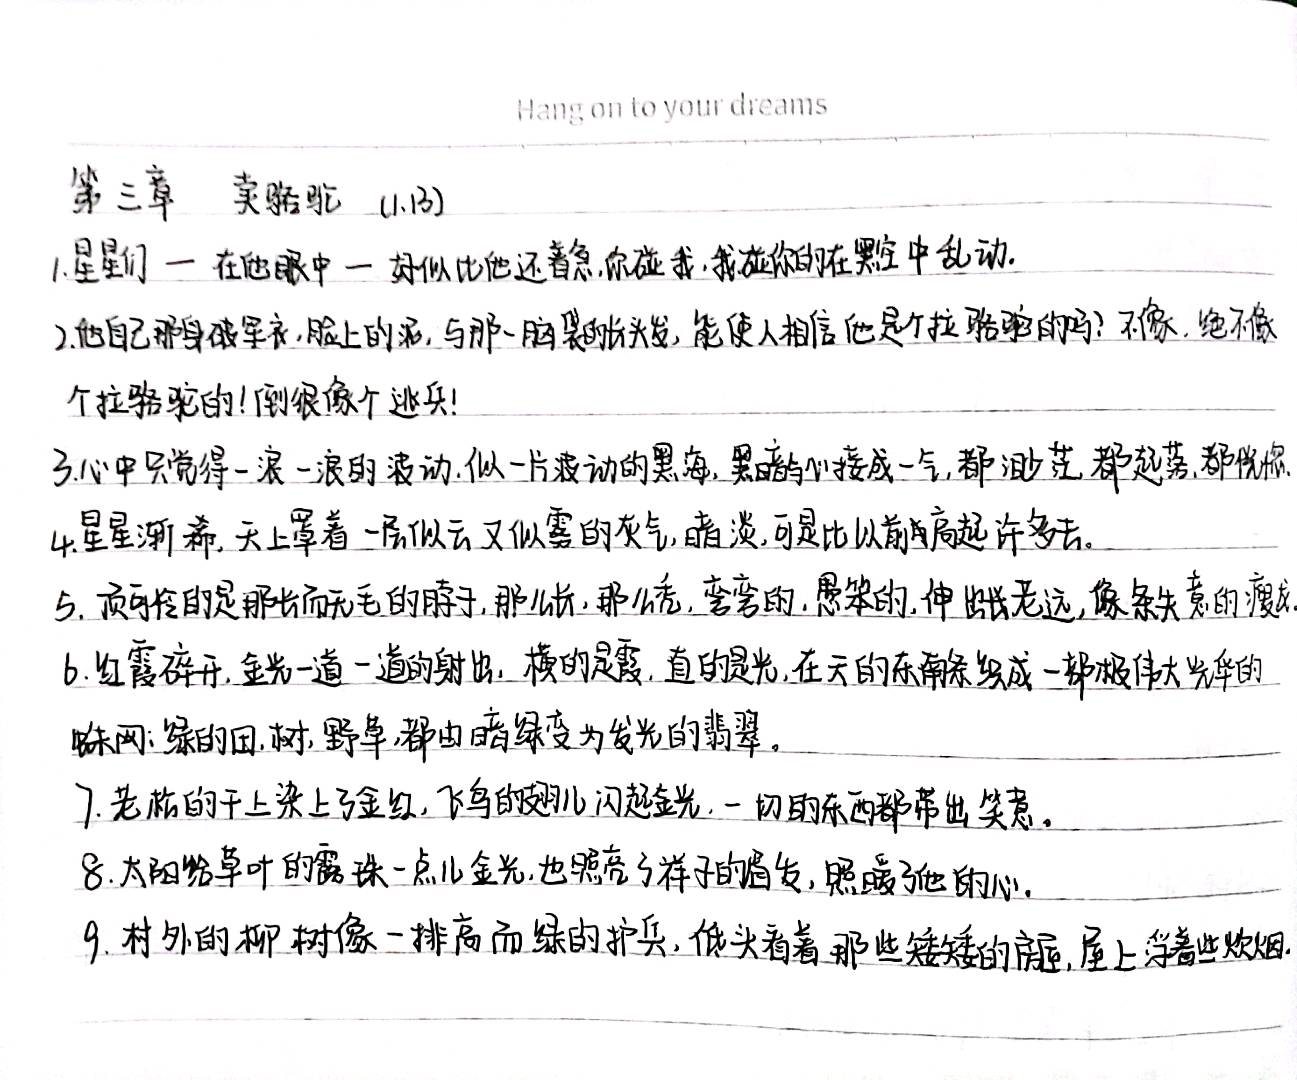 Hang on to your dreams
第三章 卖骆驼 (1.13)
1.星星们一在他眼中一好似比他还着急,你碰我,我碰你的在黑空中乱动.
2.他自己那身破军衣,脸上的泥,与那一脑袋的长头发,能使人相信他是个拉骆驼的吗?不像,绝不像
个拉骆驼的!倒很像个逃兵!
3.心中只觉得一浪一浪的波动,似一片波动的黑海,黑暗与心接成一气,都渺茫,都起落,都恍惚.
4.星星渐稀,天上罩着一层似云又似雾的灰气,暗淡,可是比以前高起许多去。
5.顶可怜的是那长而无毛的脖子,那么长,那么秃,弯弯的,愚笨的,伸出老远,像条失意的瘦龙.
6.红霞碎开,金光一道一道的射出,横的是霞,直的是光,在天的东南角织成一部极伟大光华的
蛛网:绿的田,树,野草,都由暗绿变为发光的翡翠。
7.老松的干上染上了金红,飞鸟的翅儿闪起金光,一切的东西都带出笑意。
8.太阳给草叶的露珠一点儿金光,也照亮了祥子的眉发,照暖了他的心.
9.村外的柳树像一排高而绿的护兵,低头看着那些矮矮的房屋,屋上浮着些炊烟.